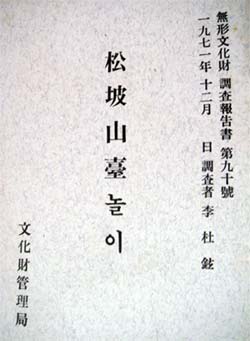 無形文化財 調査報告書 第九十號
一九七一年 十二月 日 調査者 李杜鉉
松坡山臺놀이
文化財管理局